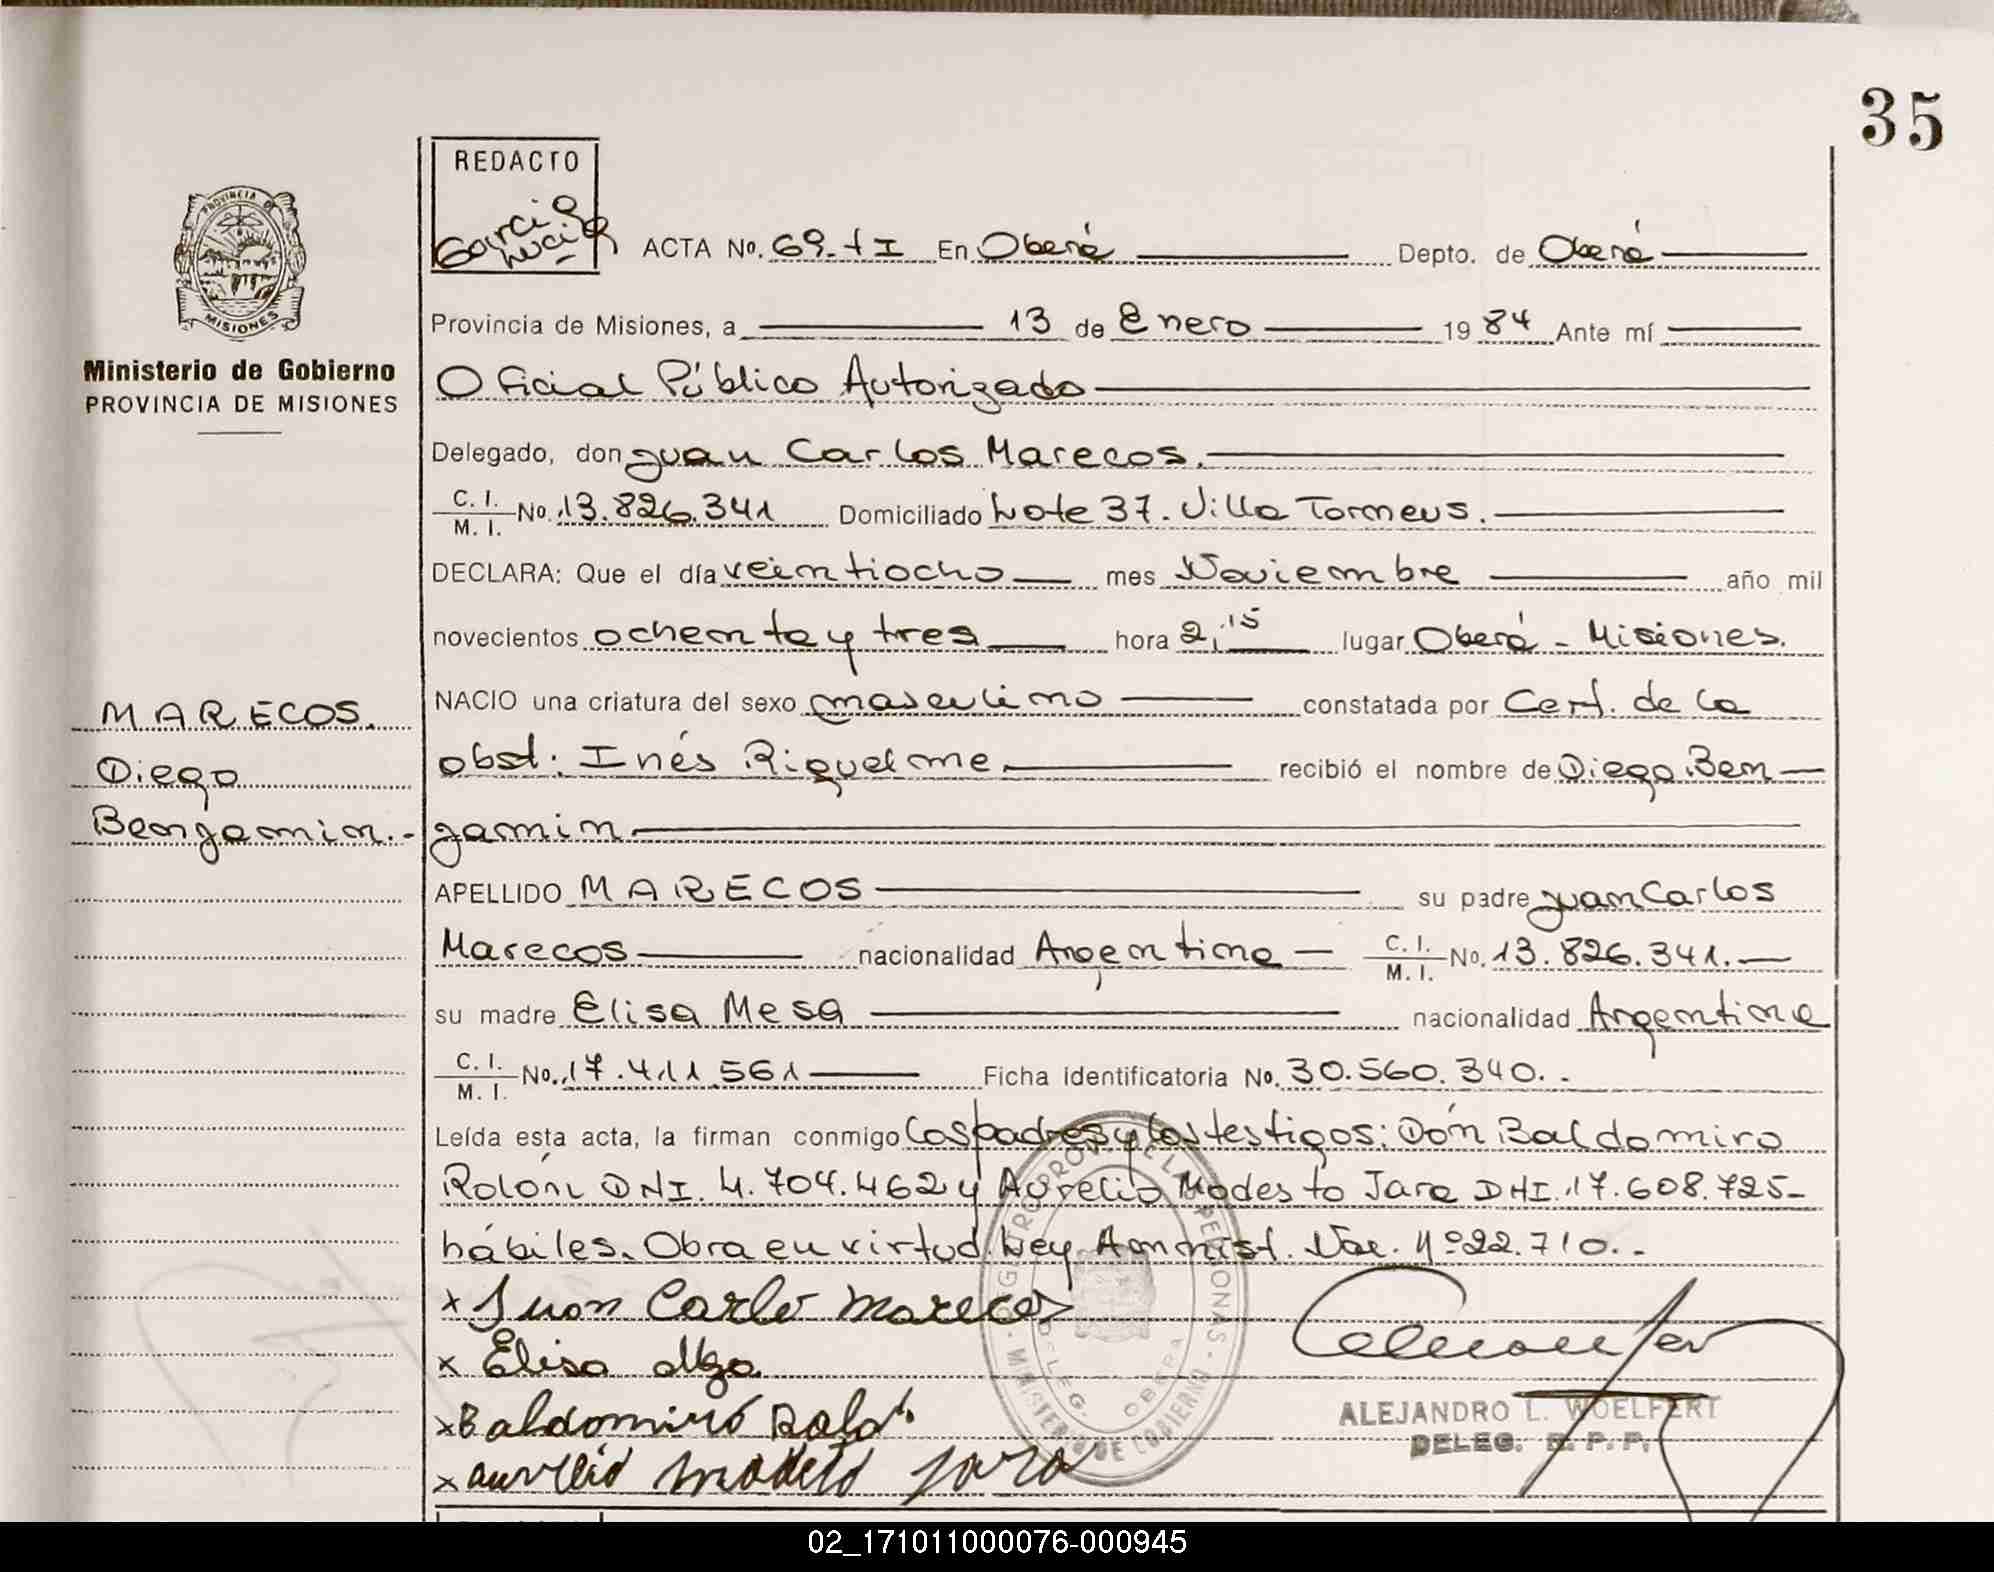 35
REDACTO
Garcia
Lucia
ACTA No. 69-tI En Oberá Depto. de Oberá
PROVINCIA DE
MISIONES
Provincia de Misiones, a 13 de Enero 1984 Ante mí
Ministerio de Gobierno
PROVINCIA DE MISIONES
Oficial Público Autorizado
Delegado, don Juan Carlos Marecos.
C. I. / M. I. No. 13.826.341 Domiciliado Lote 37. Villa Torneus.
DECLARA: Que el día veintiocho mes Noviembre año mil
novecientos ochenta y tres hora 2,15 lugar Oberá - Misiones.
MARECOS.
Diego
Benjamin.-
NACIO una criatura del sexo masculino constatada por Cert. de la
obst. Inés Riquelme recibió el nombre de Diego Ben-
jamin
APELLIDO MARECOS su padre Juan Carlos
Marecos nacionalidad Argentina - C. I. / M. I. No. 13.826.341.-
su madre Elisa Mesa nacionalidad Argentina
C. I. / M. I. No. 17.411.561 Ficha Identificatoria No. 30.560.340.-
Leída esta acta, la firman conmigo los padres y los testigos: Dón Baldomiro
Rolón DNI. 4.704.462 y Aurelio Modesto Jara DNI. 17.608.725-
hábiles. Obra en virtud. Ley Amnist. Nac. Nº 22.710.-
x Juan Carlo Marecos
x Elisa
x Baldomiró Roló
x aurelio modeto jara
REGISTRO PROV. DE LAS PERSONAS - MINISTERIO DE GOBIERNO -
DELEG. OBERA
ALEJANDRO L. WOELFERT
DELEG. R. P. P.
02_171011000076-000945